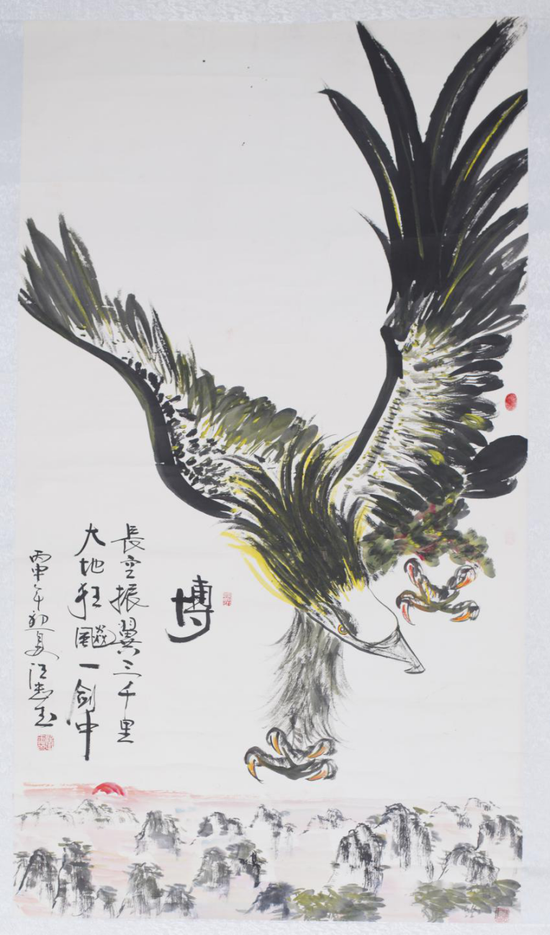 博
長空振翼三千里
大地狂飚一剑中
丙申年初夏 汪忠玉